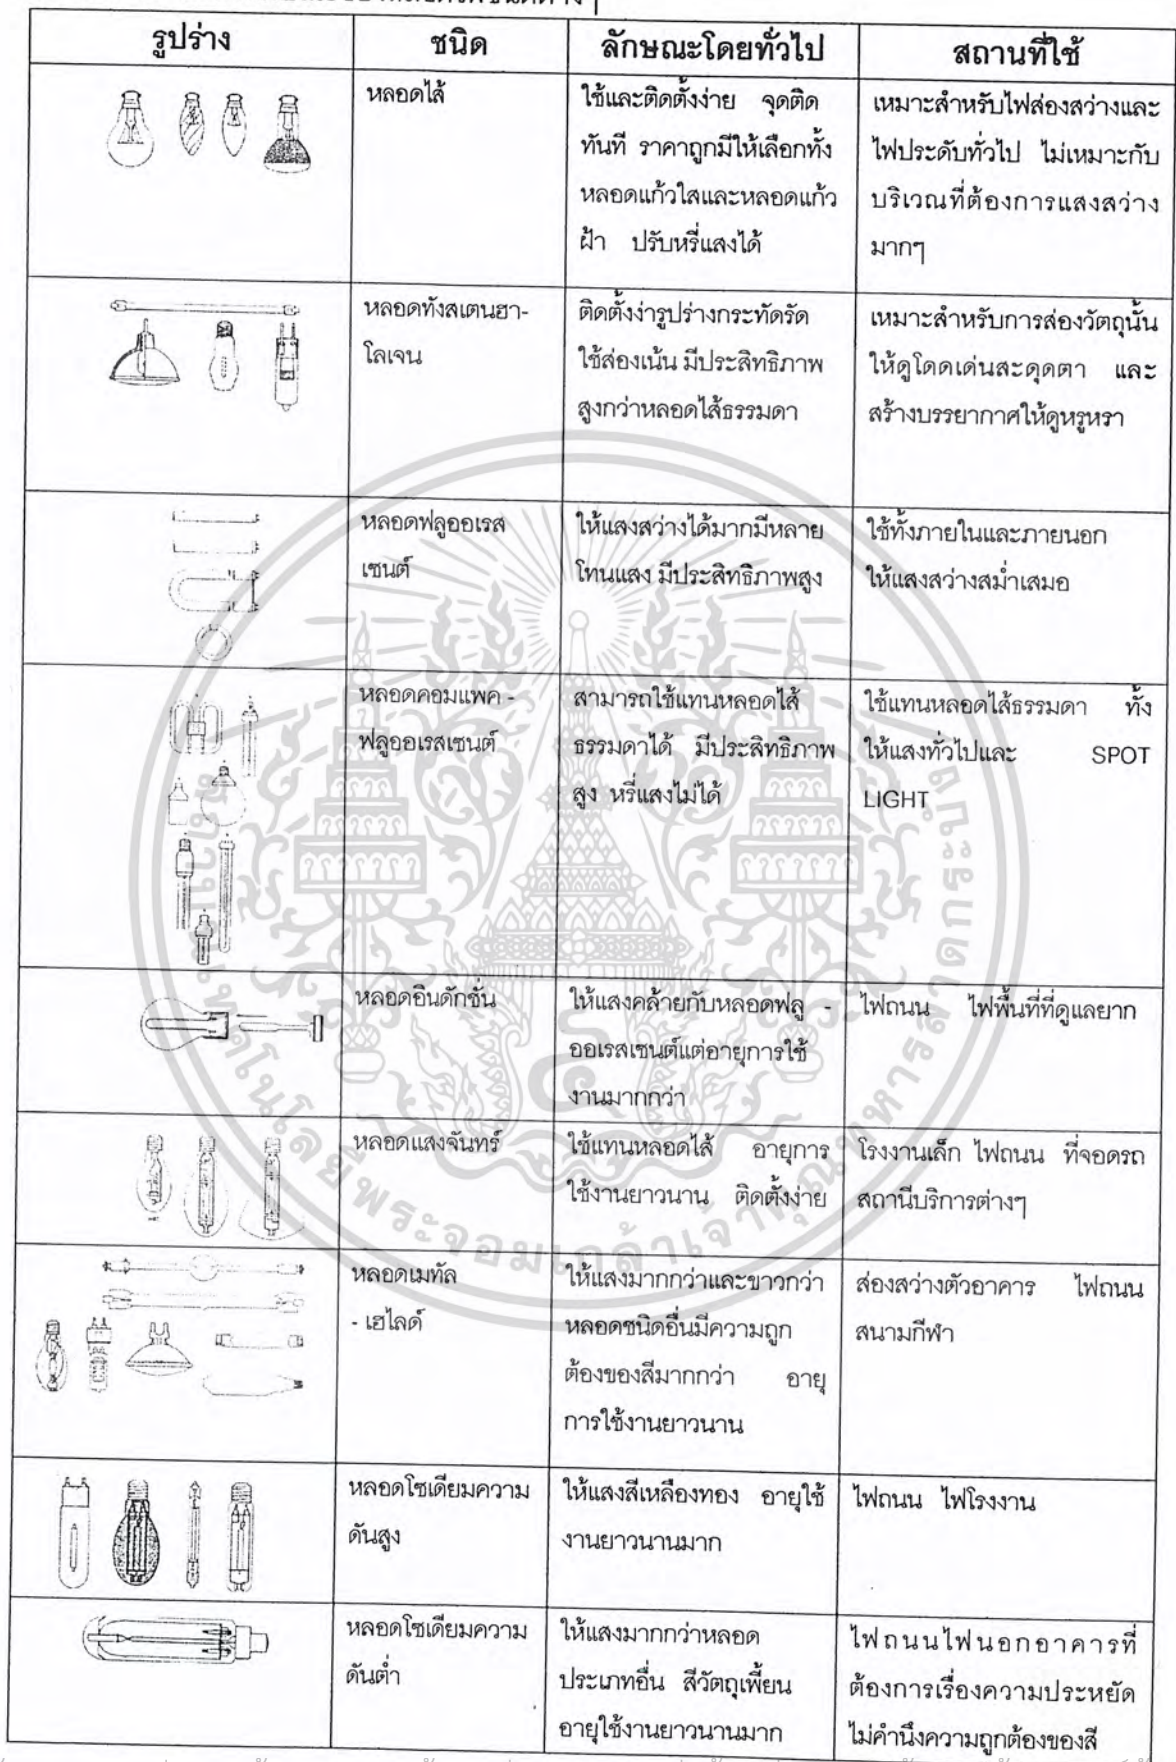 รูปร่าง ชนิด ลักษณะโดยทั่วไป สถานที่ใช้
หลอดไส้
ใช้และติดตั้งง่าย จุดติด
ทันที ราคาถูกมีให้เลือกทั้ง
หลอดแก้วใสและหลอดแก้ว
ฝ้า ปรับหรี่แสงได้
เหมาะสำหรับไฟส่องสว่างและ
ไฟประดับทั่วไป ไม่เหมาะกับ
บริเวณที่ต้องการแสงสว่าง
มากๆ
หลอดทังสเตนฮา-
โลเจน
ติดตั้งง่ารูปร่างกระทัดรัด
ใช้ส่องเน้น มีประสิทธิภาพ
สูงกว่าหลอดไส้ธรรมดา
เหมาะสำหรับการส่องวัตถุนั้น
ให้ดูโดดเด่นสะดุดตา และ
สร้างบรรยากาศให้ดูหรูหรา
หลอดฟลูออเรส
เซนต์
ให้แสงสว่างได้มากมีหลาย
โทนแสง มีประสิทธิภาพสูง
ใช้ทั้งภายในและภายนอก
ให้แสงสว่างสม่ำเสมอ
หลอดคอมแพค -
ฟลูออเรสเซนต์
สามารถใช้แทนหลอดไส้
ธรรมดาได้ มีประสิทธิภาพ
สูง หรี่แสงไม่ได้
ใช้แทนหลอดไส้ธรรมดา ทั้ง
ให้แสงทั่วไปและ SPOT
LIGHT
หลอดอินดักชั่น
ให้แสงคล้ายกับหลอดฟลู -
ออเรสเซนต์แต่อายุการใช้
งานมากกว่า
ไฟถนน ไฟพื้นที่ที่ดูแลยาก
หลอดแสงจันทร์
ใช้แทนหลอดไส้ อายุการ
ใช้งานยาวนาน ติดตั้งง่าย
โรงงานเล็ก ไฟถนน ที่จอดรถ
สถานีบริการต่างๆ
หลอดเมทัล
- เฮไลด์
ให้แสงมากกว่าและขาวกว่า
หลอดชนิดอื่นมีความถูก
ต้องของสีมากกว่า อายุ
การใช้งานยาวนาน
ส่องสว่างตัวอาคาร ไฟถนน
สนามกีฬา
หลอดโซเดียมความ
ดันสูง
ให้แสงสีเหลืองทอง อายุใช้
งานยาวนานมาก
ไฟถนน ไฟโรงงาน
หลอดโซเดียมความ
ดันต่ำ
ให้แสงมากกว่าหลอด
ประเภทอื่น สีวัตถุเพี้ยน
อายุใช้งานยาวนานมาก
ไฟถนนไฟนอกอาคารที่
ต้องการเรื่องความประหยัด
ไม่คำนึงความถูกต้องของสี